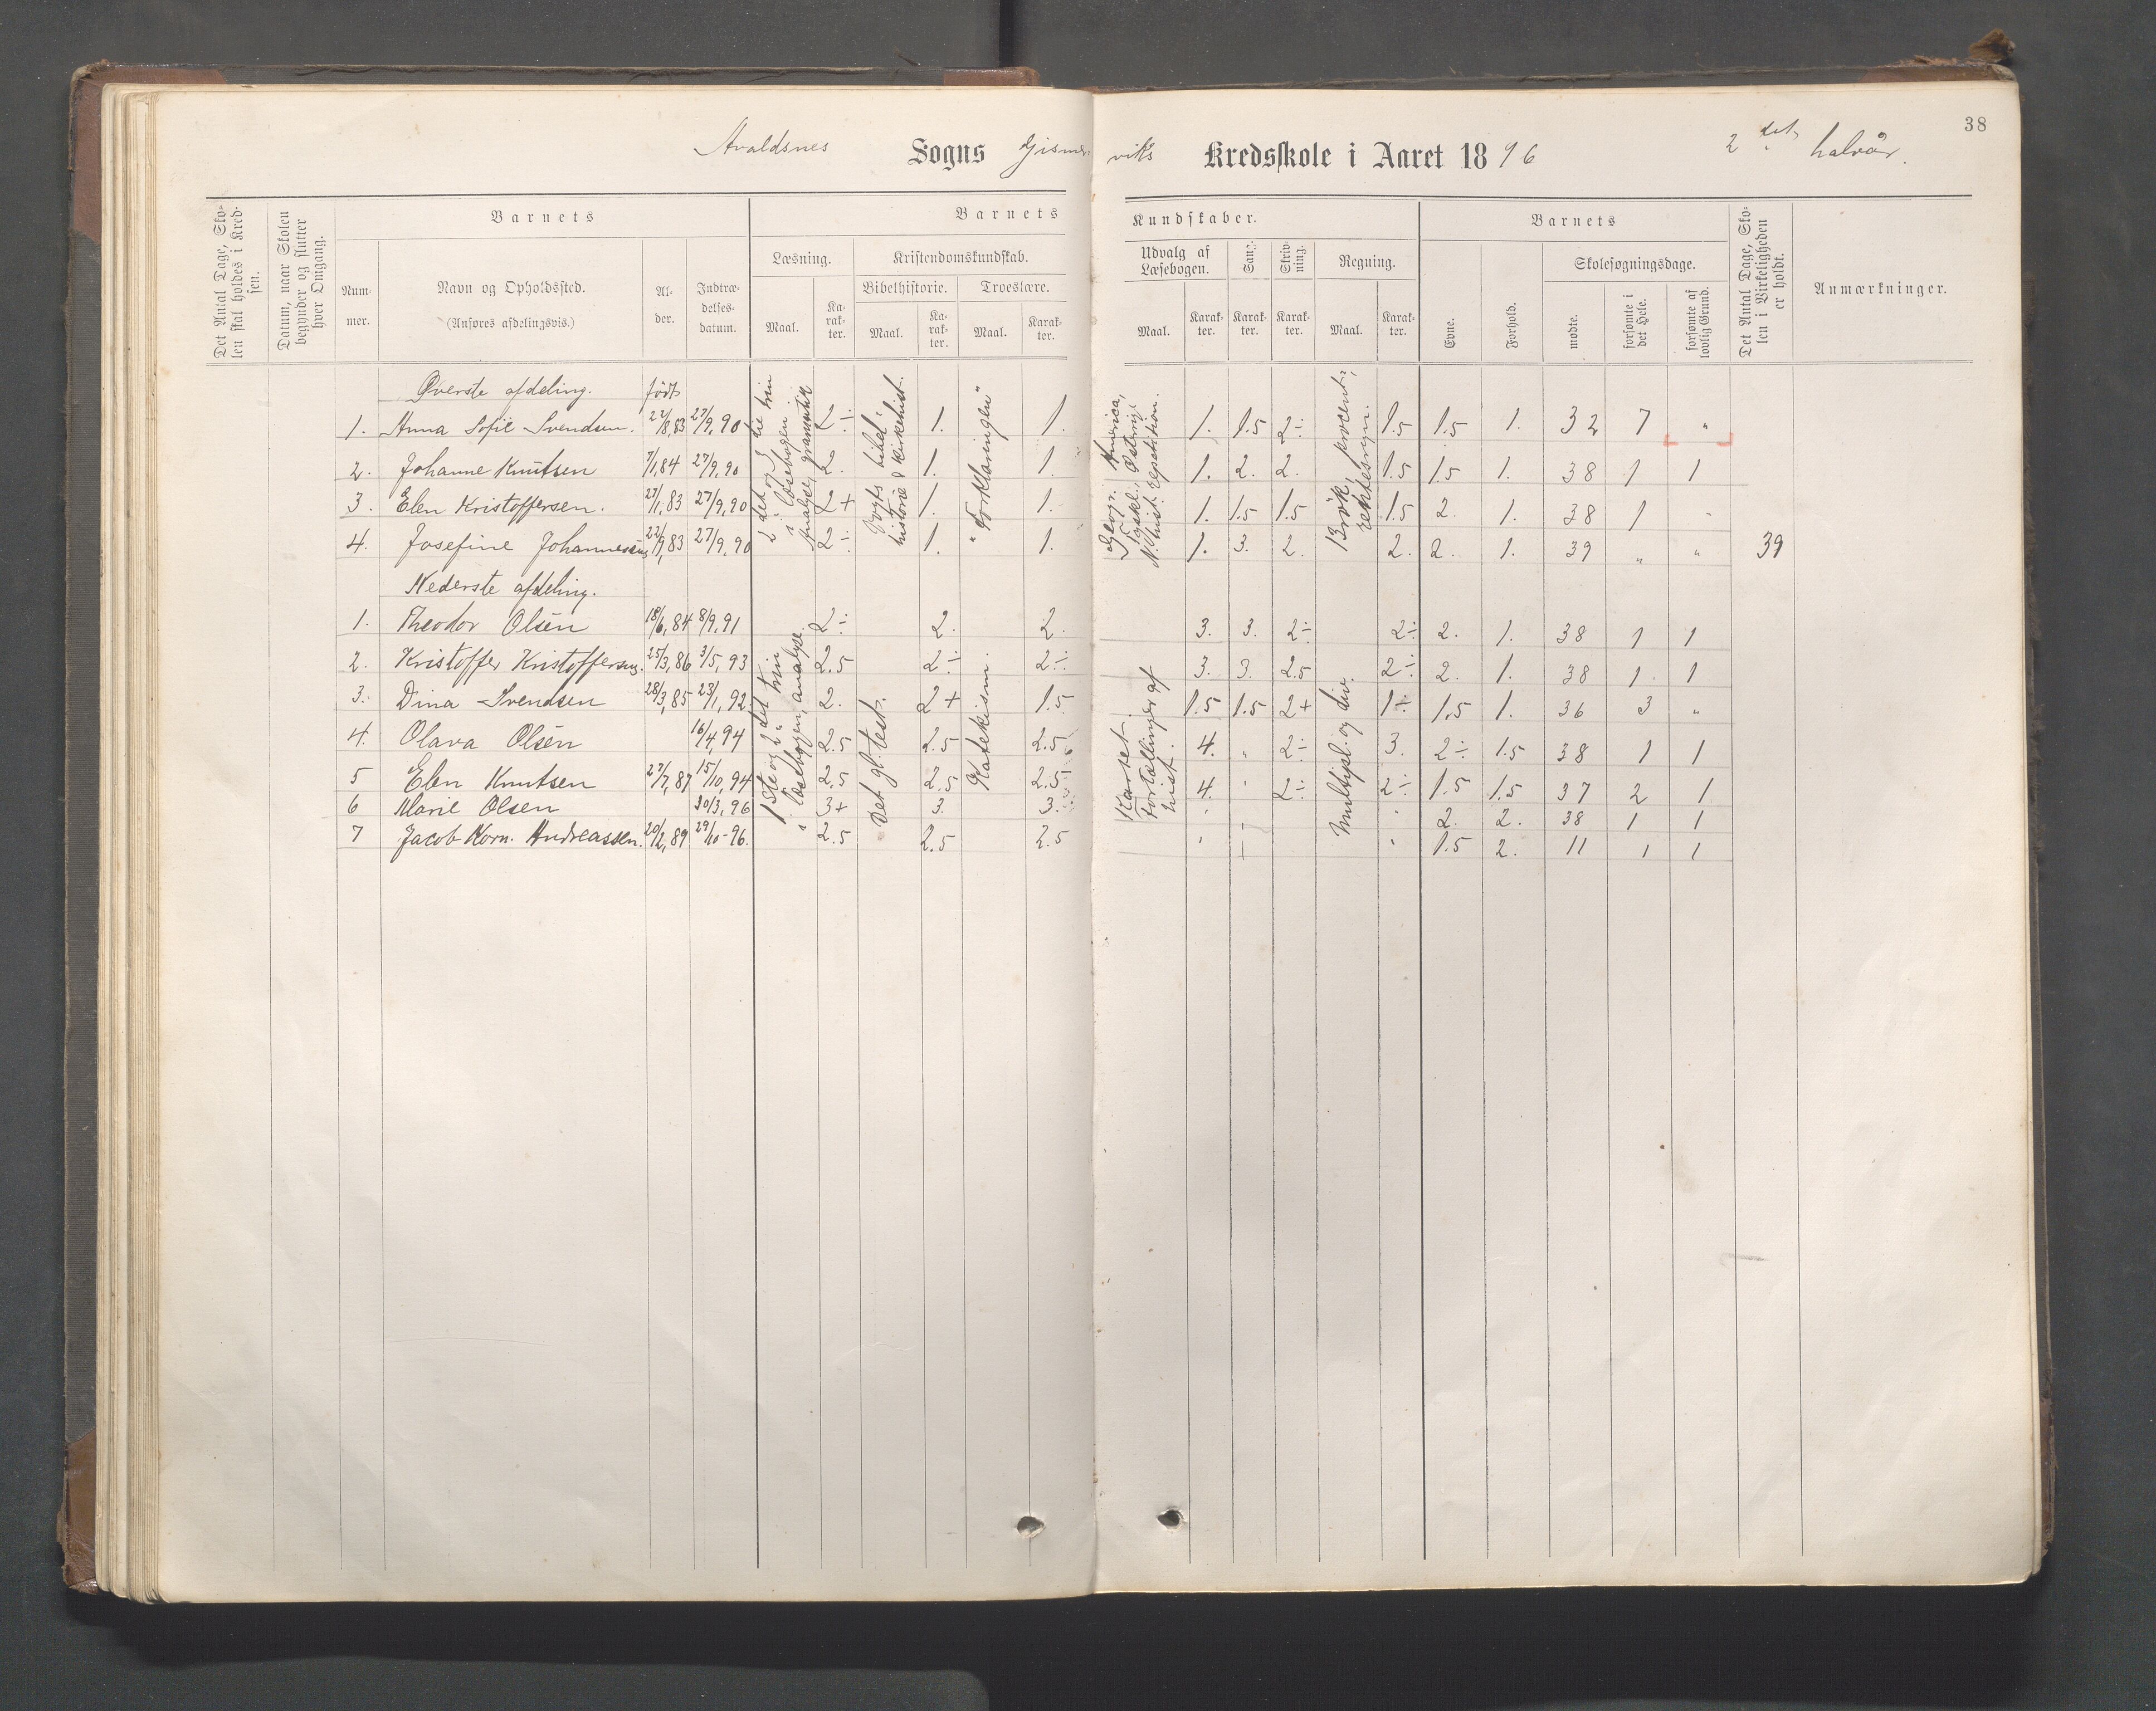 38
Avaldsnes Sogns Gismerviks Kredsskole i Aaret 1896 2det halvår.
Det Antal Dage, Skolen skal holdes i Kredsen.
Datum, naar Skolen begynder og slutter hver Omgang.
Barnets
Barnets Kundskaber.
Barnets
Det Antal Dage, Skolen i Virkeligheden er holdt.
Anmærkninger.
Nummer.
Navn og Opholdssted.
(Anføres afdelingsvis.)
Alder.
Indtrædelsesdatum.
Læsning.
Kristendomskundskab.
Udvalg af Læsebogen.
Sang.
Skrivning.
Regning.
Evne.
Forhold.
Skolesøgningsdage.
Bibelhistorie.
Troeslære.
Maal. Karakter. Maal. Karakter. Maal. Karakter. Maal. Karakter. Karakter. Karakter. Maal. Karakter.
mødte.
forsømte i det Hele.
forsømte af lovlig Grund.
Øverste afdeling. født
1. Anna Sofie Svendsen. 22/8,83 27/9,90 2÷ 1. 1. 1. 1.5 2÷ 1.5 1.5 1. 32 7 "
2. Johanne Knutsen 7/1,84 27/9,90 2. 1. 1. 1. 2. 2. 1.5 1.5 1. 38 1 1
3. Elen Kristoffersen. 27/1,83 27/9,90 2+ 1. 1. 1. 1.5 1.5 1.5 2. 1. 38 1 "
4. Josefine Johannessen 22/9,83 27/9,90 2÷ 1. 1. 1. 3. 2. 2. 2. 1. 39 " " 39
2det og 3die trin i læsebogen. Analyse, grammatik
Vogts bibelhistorie & kirkehist.
"Forklaringen"
Geogr. America,
Fyskl., Østerrige
N. hist. repetition.
Brøk, procent-, rentesregn.
Nederste afdeling.
1. Theodor Olsen 18/6,84 8/9,91 2÷ 2. 2. 3. 3. 2÷ 2÷ 2. 1. 38 1 1
2. Kristoffer Kristoffersen. 25/3,86 3/5,93 2.5 2÷ 2÷ 3. 3. 2.5 2÷ 2. 1. 38 1 1
3. Dina Svendsen 28/3,85 23/1,92 2. 2+ 1.5 1.5 1.5 2+ 1÷ 1.5 1. 36 3 "
4. Olava Olsen 16/4,94 2.5 2.5 2.5 4. " 2÷ 3. 2÷ 1.5 38 1 1
5 Elen Knutsen 27/7,87 15/10,94 2.5 2.5 2.5 4. " 2÷ 2÷ 1.5 1.5 37 2 1
6 Marie Olsen 30/3,96 3+ 3. 3. 2. 2. 38 1 1
7 Jacob Korn. Andreassen. 20/2,89 29/10-96. 2.5 2.5 2.5 1.5 2. 11 1 1
1ste og 2det trin i læsebogen, analyse.
Det gl. test.
Katekism.
Kartet.
Fortællinger af hist.
Multipl. og div.